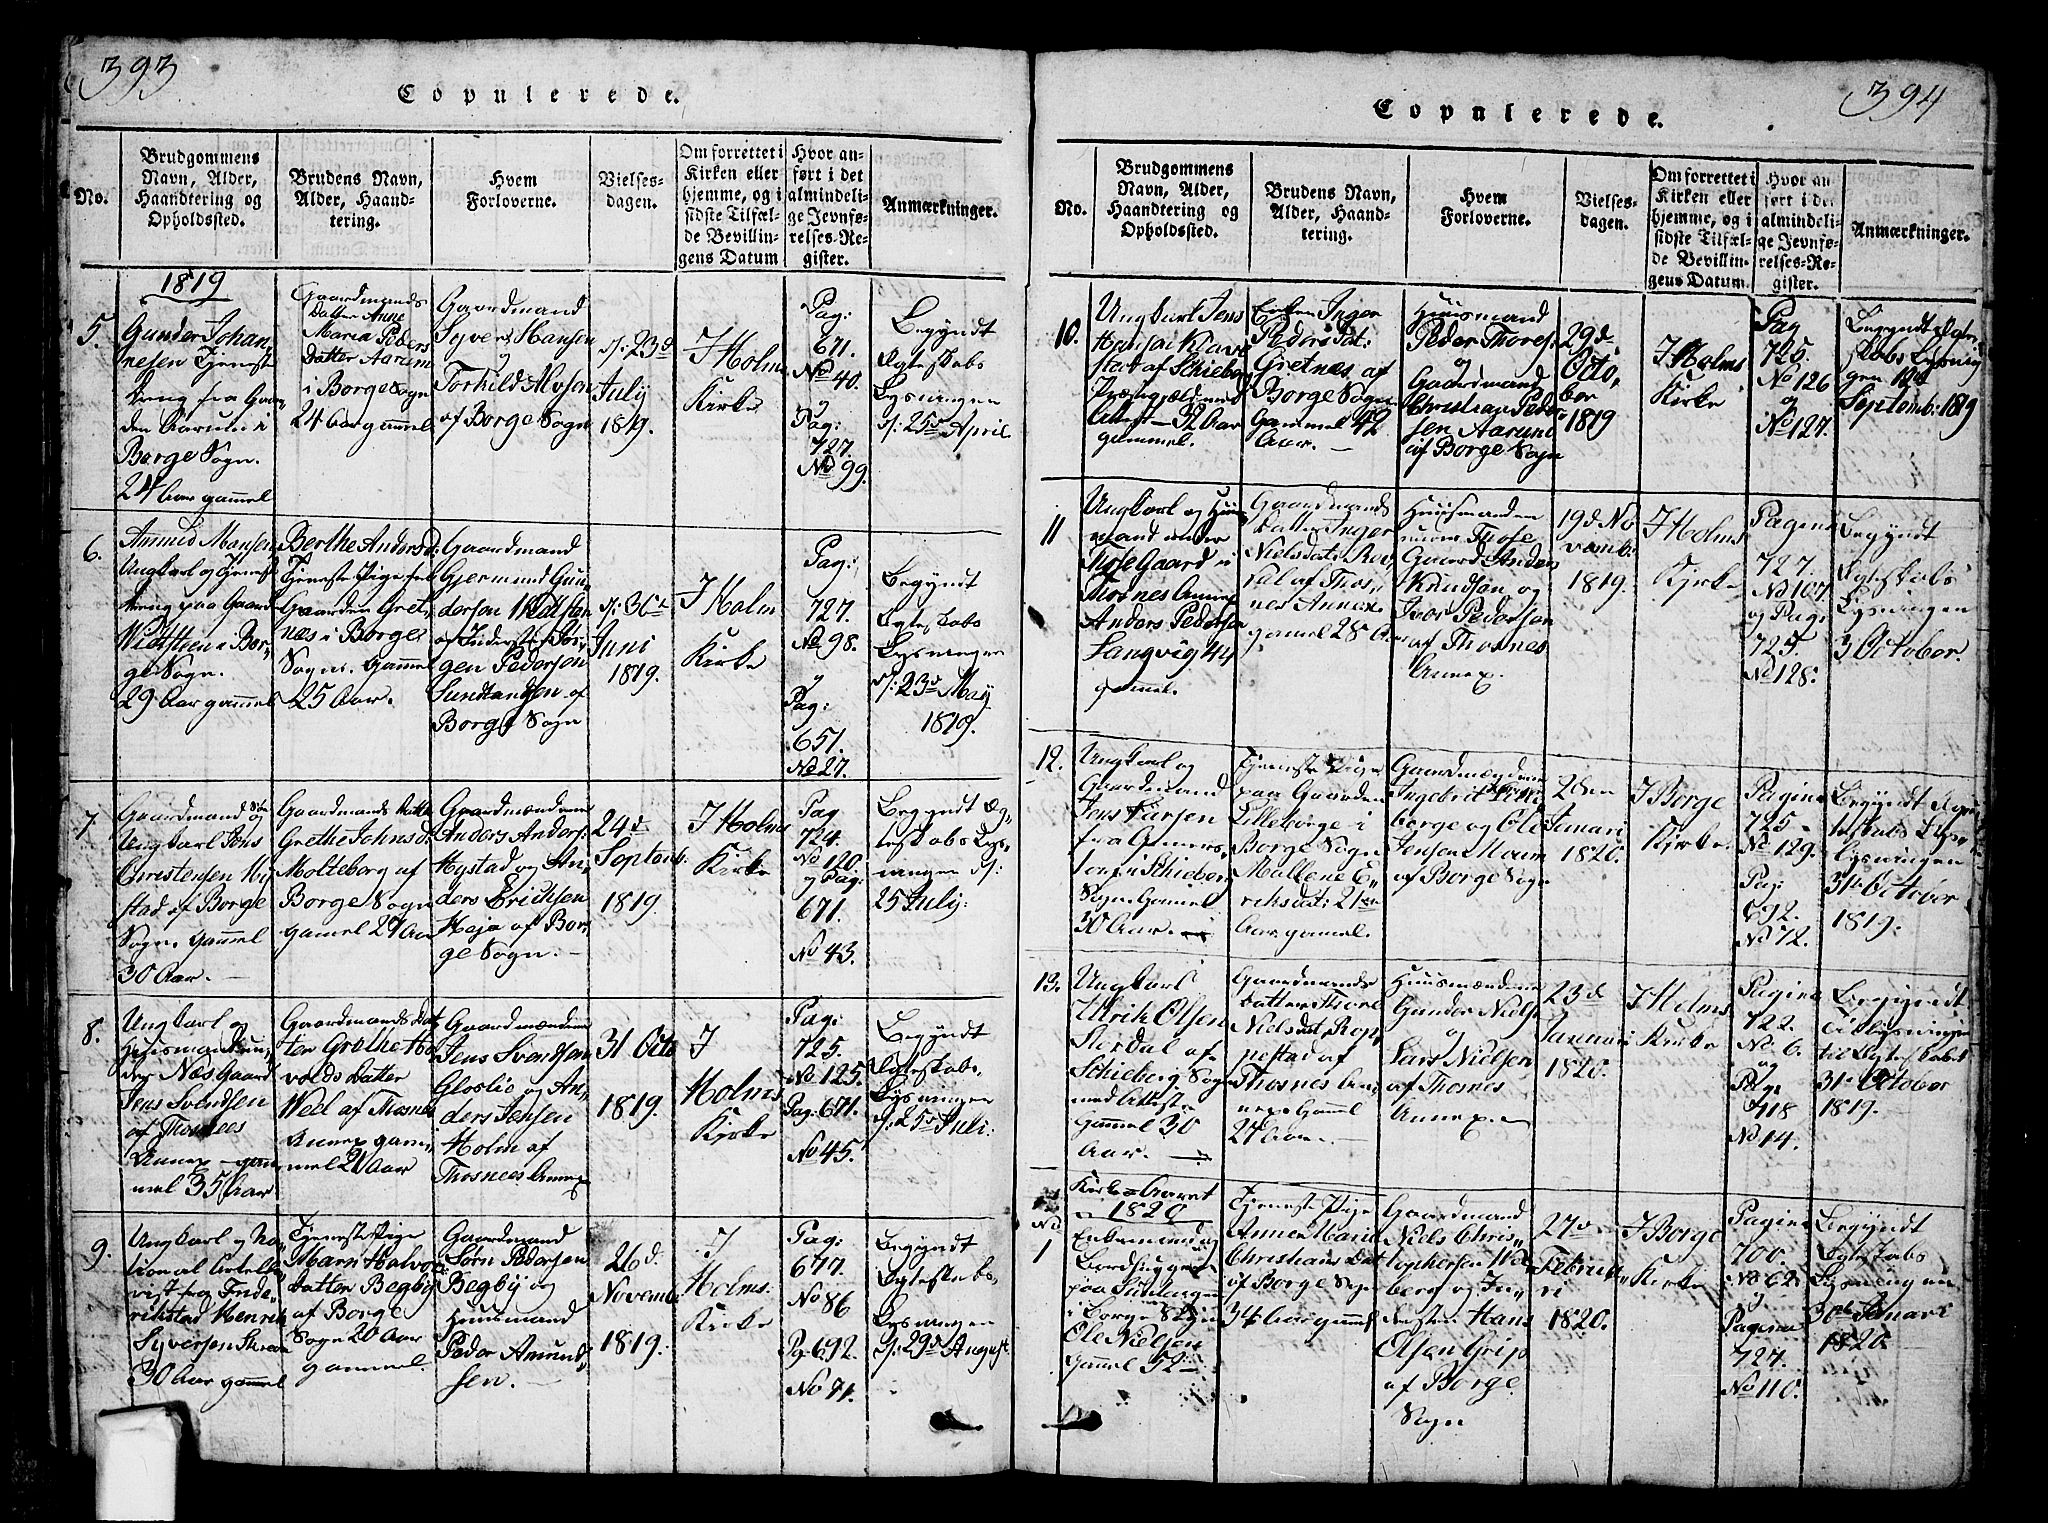 393
Copulerede.
No.
Brudgommens
Navn, Alder,
Haandtering og
Opholdssted.
Brudens Navn,
Alder, Haand-
tering.
Hvem
Forloverne.
Vielses-
dagen.
Om forrettet i
Kirken eller
hjemme, og i
sidste Tilfæl-
de Bevillin-
gens Datum
Hvor an-
ført i det
almindeli-
ge Jevnfø-
relses-Re-
gister.
Anmærkninger.
1819
5.
Gunder Johan-
nesen Tjeneste
dreng fra Gaar-
den Aarum i
Borge Sogn.
24 Aar gammel
Gaardmands
Datter Anne
Maria Peders
Datter Aarum
i Borge Sogn
24 Aar gammel
Gaardmand
Syver Hansen
og
Torhild Mosen
af Borge Sogn
d: 23d
July
1819.
I Holm
Kirke
Pag:
671.
No 40.
og
Pag:
727.
No 99.
Begyndt
Egteskabs
Lysningen
d: 25d April
6.
Amund Hansen
Ungkarl og Tjeneste
dreng paa Gaard
Widsteen i Bor-
ge Sogn.
29 Aar gammel
Berthe Andersd:
Tjeneste Pige fra
Gaarden Gret-
næs i Borge
Sogn. Gammel
25 Aar.
Gaardmand
Gjermund Gun-
dersen Widsten
og Inderste Jør-
gen Pedersen
Sundtangen af
Borge Sogn
d: 30t
Juni
1819.
I Holm
Kirke
Pag:
727.
No 98.
og
Pag:
651.
No 27.
Begyndt
Egteskabs
Lysningen
d: 23d May
1819.
7.
Gaardmand Søn og
Ungkarl Jens
Christensen Hy-
stad af Borge
Sogn. gammel
30 Aar.
Gaardmands Datter
Grethe Johnsd:
Molteborg af
Borge Sogn
gamel 27 Aar
Gaardmændene
Anders Anders:
Hystad og An-
ders Erichsen
Heja af Bor-
ge Sogn.
24d
Septemb:
1819.
I Holms
Kirke
Pag
724.
No 120
og Pag:
671.
No 43.
Begyndt Eg-
teskabs Lys-
ningen d:
25 July:
8.
Ungkarl og
Huusmand un-
der Næs Gaard
Jens Svendsen
af Thosnees
Annex gam-
mel 35 Aar
Gaardmands Dat-
ter Grethe Ha-
volds Datter
Weel af Thosnes
Annex gam-
mel 21 Aar
Gaardmændene
Jens Svendsen
Glosli og An-
ders Jensen
Holm af
Thosnees Annex
31 Octo
1819.
I
Holms
Kirke
Pag:
725.
No 125.
Pag: 671.
No 45.
Begyndt
Egteskabs-
Lysningen
d: 25d Juli:
9.
Ungkarl og Na-
tional Artille-
rist fra Frede-
rikstad Henrik
Syversen
30 Aar gammel
Tjeneste Pige
Marn Halvo
datter Begby
af Borge
Sogn 20 Aar
gammel.
Gaardmand
Sørn Pedersen
Begby og
Huusmand
Peder Amund-
sen.
26d.
Novemb
1819.
I
Holms
Kirke
Pag:
677.
No 86
Pag: 692.
No 71.
Begyndt
Egteskabs-
Lysningen
d: 29d August.
394
Copulerede.
No.
Brudgommens
Navn, Alder,
Haandtering og
Opholdssted.
Brudens Navn,
Alder, Haand-
tering.
Hvem
Forloverne.
Vielses-
dagen.
Om forrettet i
Kirken eller
hjemme, og i
sidste Tilfæl-
de Bevillin-
gens Datum.
Hvor an-
ført i det
almindeli-
ge Jevnfø-
relses-Re-
gister.
Anmærkninger.
10.
Ungkarl Jens
stad af Schieberg
Præstegjæld med
Attest - 32 Aar
gammel.
Enken Inger
Peders Dat:
Gretnes af
Borge Sogn
Gammel 42
Aar.
Huusmand
Peder Thores:
og
Gaardmand
Christian Peder-
sen Aarum
af Borge Sogn
29d
Octo-
ber
1819
I Holms
Kirke
Pag
725.
No 126
og
No 127.
Begyndt Egte-
skabs Lysnin-
gen 12d
Septemb: 1819
11
Ungkarl og Huus-
mand under
Gaard i
Thosnes Annex
Anders Pedersen
Langvig 44
gammel.
Gaardmands
Datter Inger
Nielsdat:
af Thos-
nes Annex.
gamel 28 Aar
Huusmanden
Gaard Anders
Knudsen og
Iver Pedersen
af Thosnes
Annex.
19d No
vemb:
1819.
I Holms
Kirke
Pagina
727.
No 107.
og Pag:
725.
No 128.
Begyndt
Egteskabs
Lysningen
3 October.
12.
Ungkarl og
Gaardmand
Jens Larsen
fra
i Schieberg
Sogn Gamel
30 Aar.
Tjeneste Pige
paa Gaarden
Lilleborge i
Borge Sogn
Mallene E-
riksdat: 21
Aar gammel.
Gaardmændene
Ingebrit Lille
borge og Ole
Jensen Moum
af Borge Sogn
26en
Januari
1820.
I Borge
Kirke.
Pagina
725.
No 129.
Pag:
692.
No 72.
Begyndt Egte-
skabs
Lysningen
31te October
1819.
13.
Ungkarl
Ulrik Olsen
Stordal af
Schieberg Sogn
med Attest
Gammel 30
Aar.
Gaardmands
Datter Thore
Nielsdat. Rop-
pestad af
Thosnes An-
nex Gaml
27 Aar.
Huusmændene
Gunder Niels
og
Lars Nielsen
af Thosnes
Annex.
23d
Januari
1820.
I Holms
Kirke
Pagina
722.
No 6.
og
Pag:
718
No 14.
Begyndt
Tillysningen
til Egteskabet
31 October
1819.
Kirke-Aaret
1820
No
1
Enkemand og
Bordhugger
paa
i Borge Sogn
Ole Nielsen
gammel 52
Tjeneste Pige
Anne Maria
Christians Dat
af Borge Sogn
34 Aar gammel
Gaardmand
Niels Chris-
tophersen Wi-
berg og In-
dersten Hans
Olsen Grip
af Borge
Sogn
27d
Februa-
ri
1820.
I Borge
Kirke
Pagina
700.
No 62.
og
Pagina
727.
No 110.
Begyndt
Egteskabs
Lysningen
30te Januari
1820.